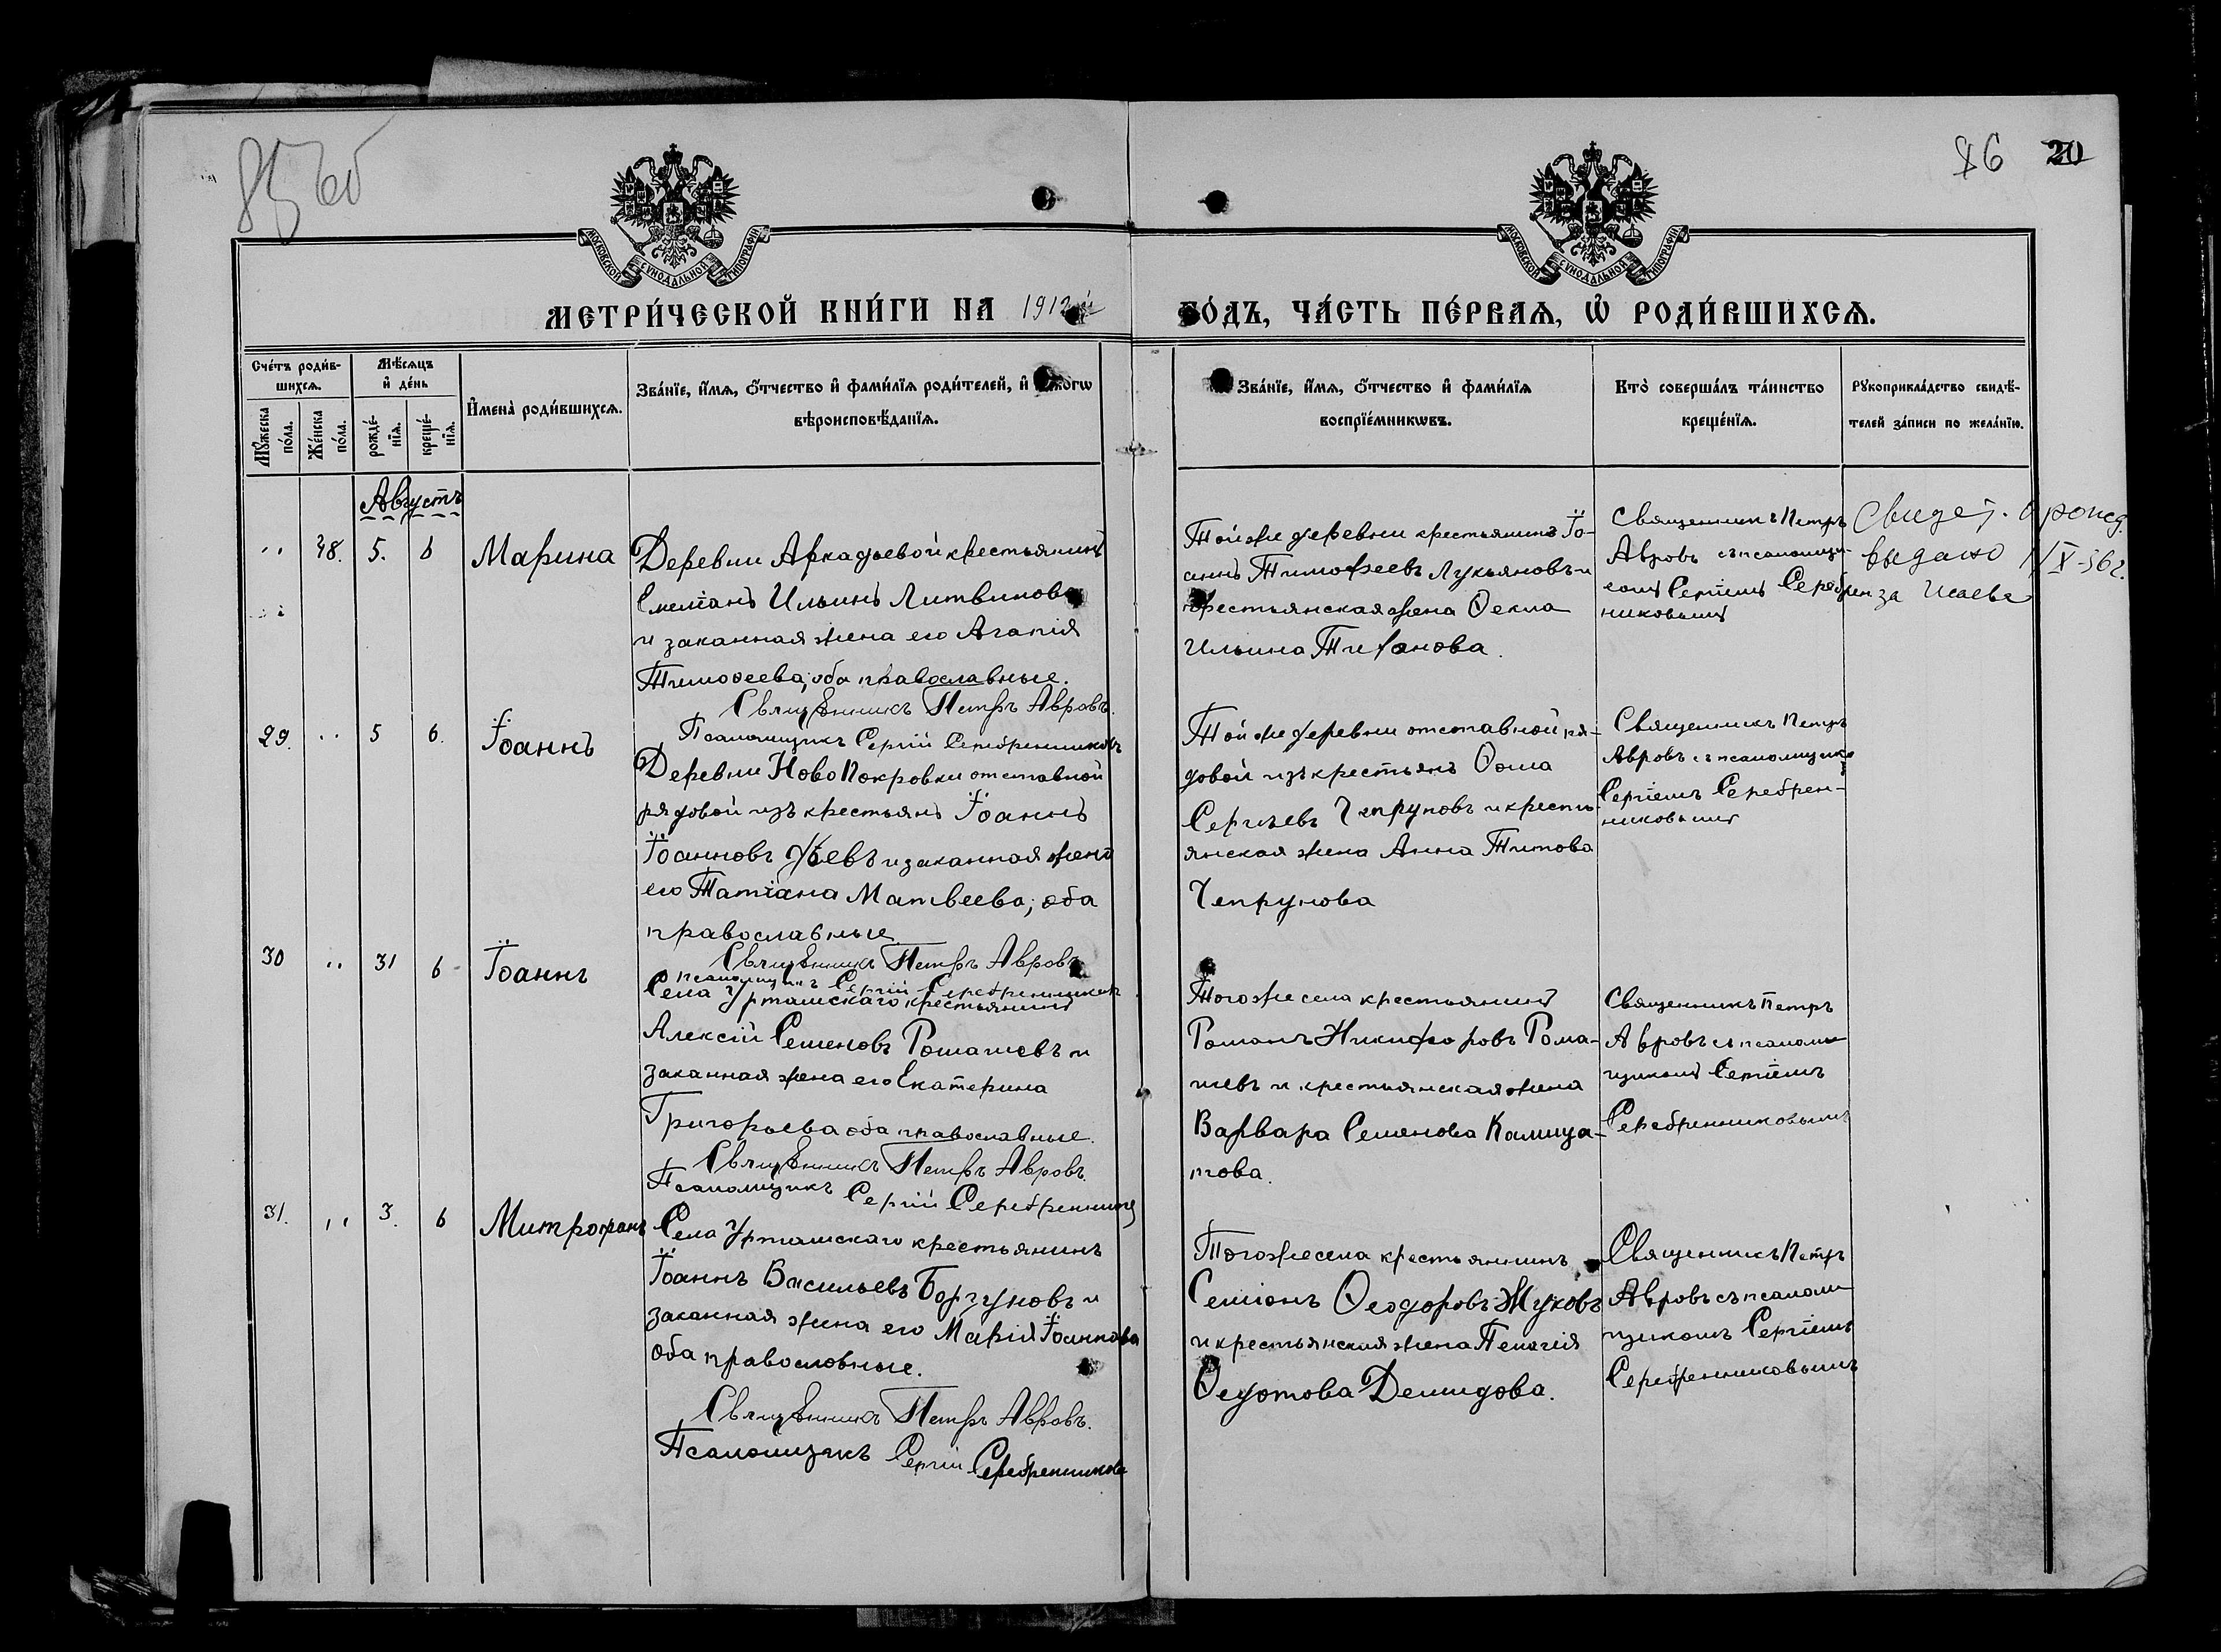 85 об
86 20
МОСКОВСКОЙ СѴНОДАЛЬНОЙ ТИПОГРАФІИ
МОСКОВСКОЙ СѴНОДАЛЬНОЙ ТИПОГРАФІИ
МЕТРИ́ЧЕСКОЙ КНИ́ГИ НА 1912 й
ГО́ДЪ, ЧА́СТЬ ПЕ́РВАѦ, Ѡ҆ РОДИ́ВШИХСѦ.
Сче́тъ роди́в-
шихсѧ.
Мѣ́сѧцъ
и҆ де́нь
Мꙋ́жеска по́ла.
Же́нска по́ла.
рожде́-нїѧ.
креще́-нїѧ.
И҆мена̀ роди́вшихсѧ.
Зва́нїе, и҆́мѧ, ѻ҆́тчество и҆ фами́лїѧ роди́телей, и҆ какогѡ
вѣроисповѣ́данїѧ.
Зва́нїе, и҆́мѧ, ѻ҆́тчество и҆ фами́лїѧ
воспрїе́мникѡвъ.
Кто̀ соверша́лъ та́инство
креще́нїѧ.
Рꙋкоприкла́дство свидѣ́-
телей за́писи по жела́нїю.
Августъ
" 38. 5. 6 Марина
Деревни Аркадьевой крестьянинъ
Емеліанъ Ильинъ Литвиновъ
и законная жена его Агапія
Тимоѳеева, оба православные.
Священникъ Петръ Авровъ.
Псаломщикъ Сергій Серебренниковъ
Той же деревни крестьянинъ Іо-
аннъ Тимофеевъ Лукьяновъ и
крестьянская жена Ѳекла
Ильина
Священникъ Петръ
Авровъ съ псаломщи-
комъ Сергіемъ Серебрен
никовымъ
Свидет. о рожд.
выдано X-56 г.
за
29. " 5 6. Іоаннъ
Деревни Ново Покровки отставной
рядовой изъ крестьянъ Іоаннъ
Іоанновъ и законная жена
его Татіана Матвеева; оба
православные
Священникъ Петръ Авровъ
Псаломщикъ Сергій Серебренниковъ
Той же деревни отставной ря-
довой изъ крестьянъ Ѳома
Сергѣевъ Чепруновъ и кресть-
янская жена Анна Титова
Чепрунова
Священникъ Петръ
Авровъ съ псаломщико
Сергіемъ Серебрен-
никовымъ
30 " 31 6 Іоаннъ
Села Урташскаго крестьянинъ
Алексій Семеновъ Ромашевъ и
законная жена его Екатерина
Григорьева оба православные.
Священникъ Петръ Авровъ.
Псаломщикъ Сергій Серебренниковъ
Тогоже села крестьянинъ
Романъ Никифоровъ Рома-
шевъ и крестьянская жена
Варвара Семенова
Священникъ Петръ
Авровъ съ псалом
щикомъ Сергіемъ
Серебренниковымъ
31. " 3. 6 Митрофанъ
Села Урташскаго крестьянинъ
Іоаннъ Васильевъ Борзуновъ и
законная жена его Марія Іоаннова
оба православные.
Священникъ Петръ Авровъ.
Псаломщикъ Сергій Серебренниковъ
Тогоже села крестьянинъ
Семіонъ Ѳеодоровъ Жуковъ
и крестьянская жена Пелагія
Ѳедотова Демидова.
Священникъ Петръ
Авровъ съ псалом
щикомъ Сергіемъ
Серебренниковымъ